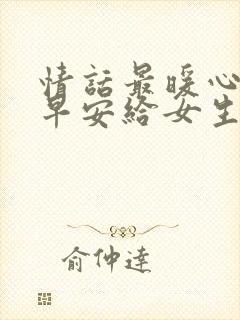 情話最暖心
早安給女生
俞仲達